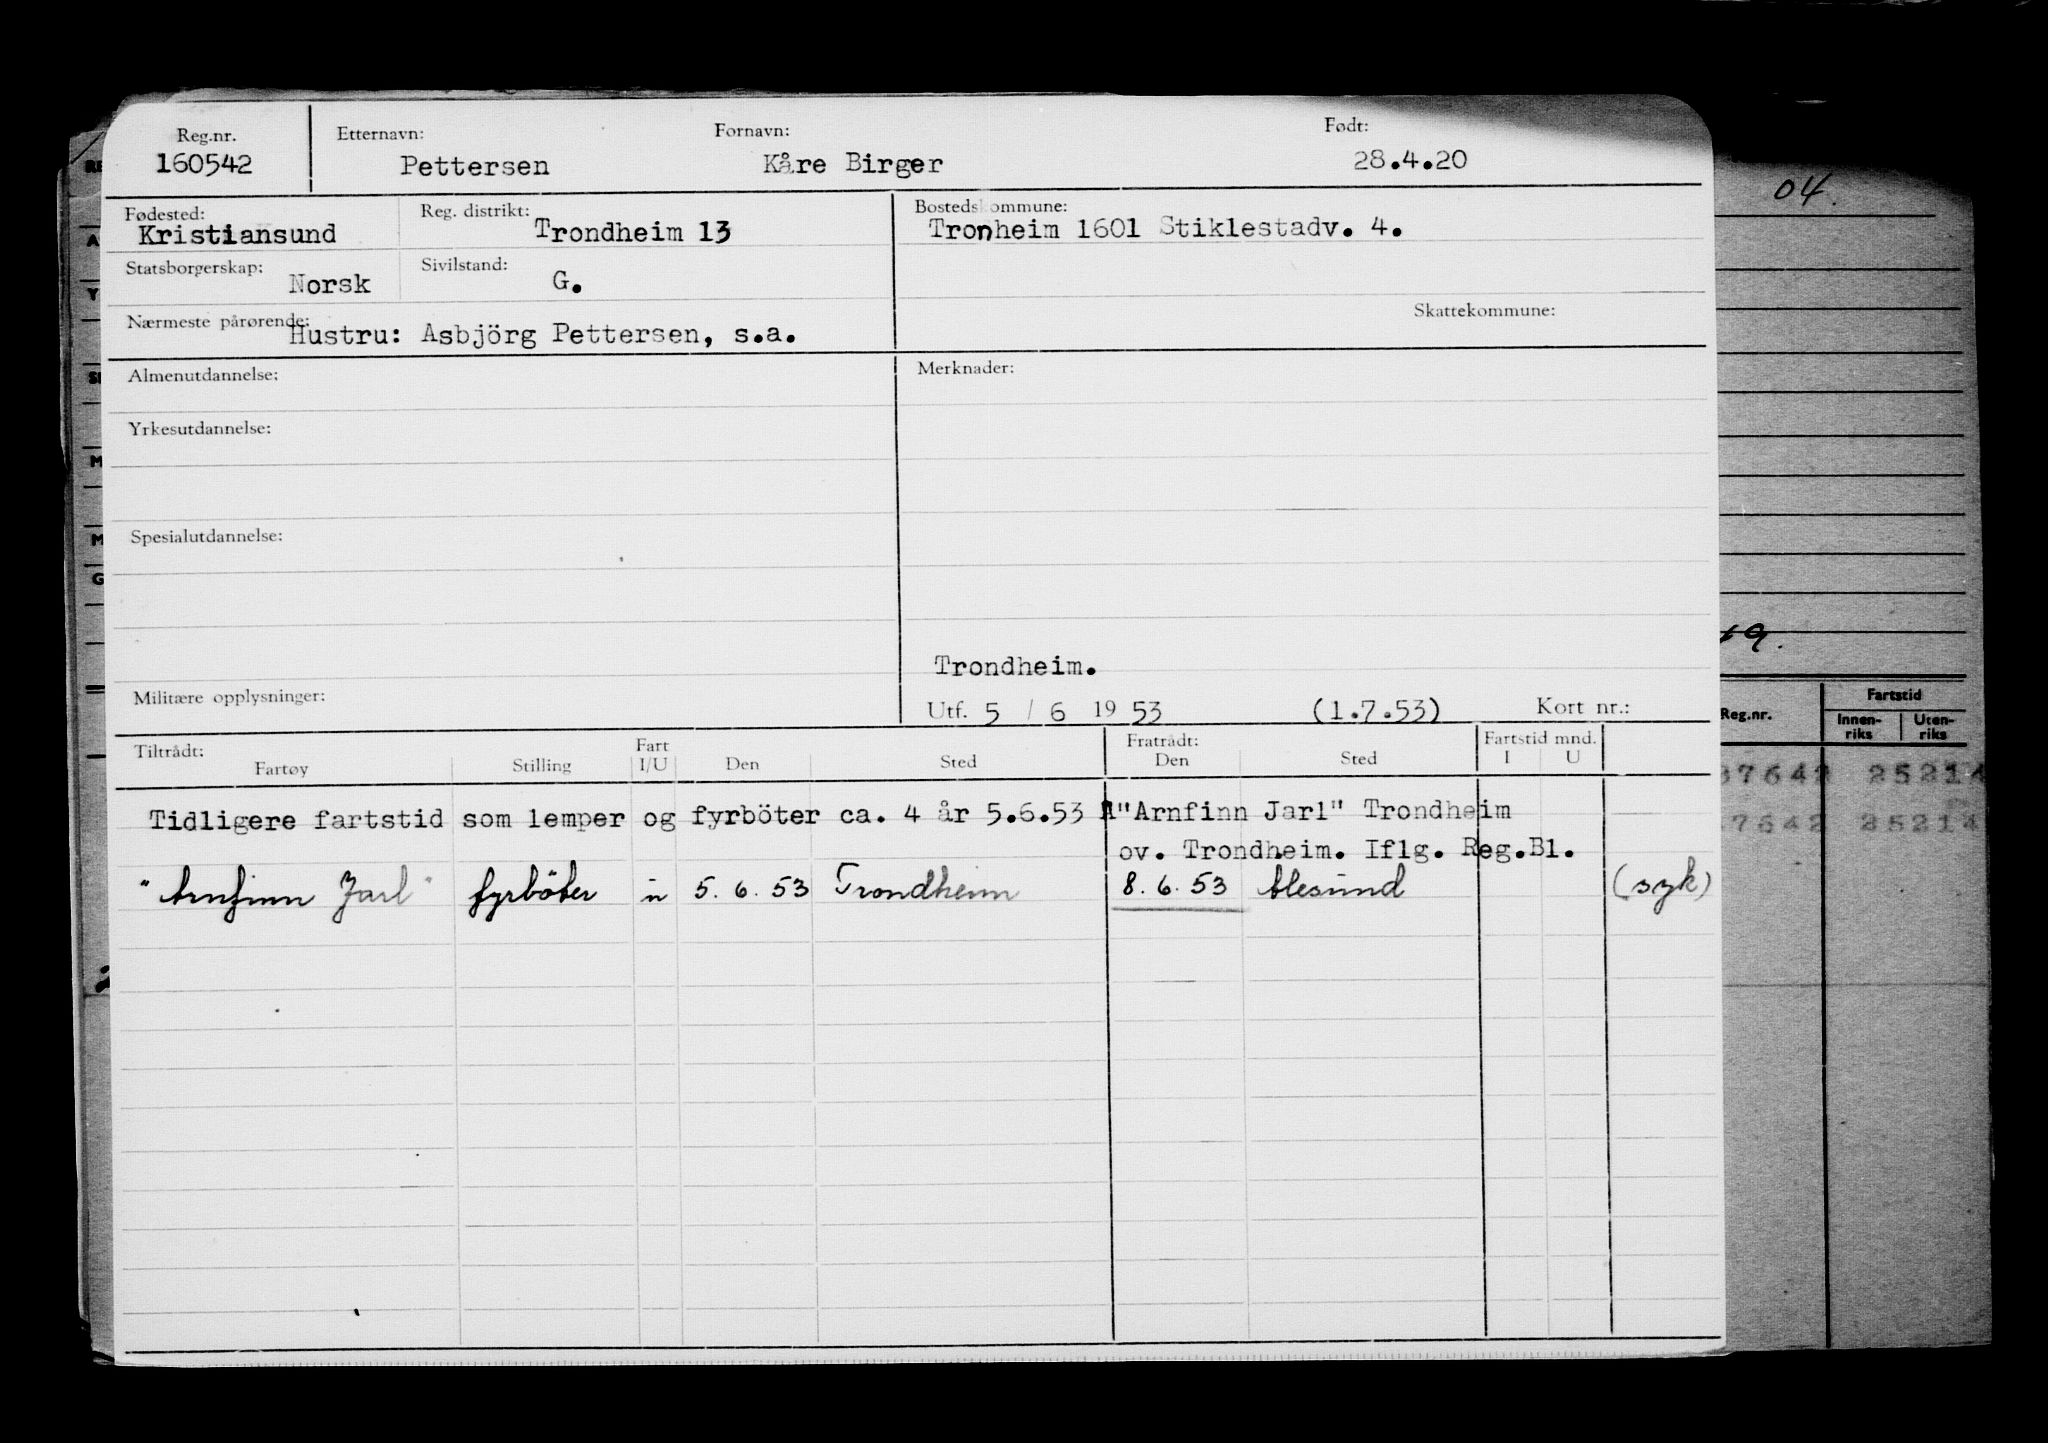 Reg.nr. Etternavn: Fornavn: Født:
160542 Pettersen Kåre Birger 28.4.20
Fødested: Reg. distrikt: Bostedskommune:
Kristiansund Trondheim 13 Tronheim 1601 Stiklestadv. 4.
Statsborgerskap: Norsk Sivilstand: G.
Skattekommune:
Nærmeste pårørende: Hustru: Asbjörg Pettersen, s.a.
Almenutdannelse: Merknader:
Yrkesutdannelse:
Spesialutdannelse:
Trondheim.
Militære opplysninger:
Utf. 5 / 6 19 53 (1.7.53) Kort nr.:
Tiltrådt: Fart Fratrådt: Fartstid mnd.
Fartøy Stilling I/U Den Sted Den Sted I U
Tidligere fartstid som lemper og fyrböter ca. 4 år 5.6.53 A "Arnfinn Jarl" Trondheim
ov. Trondheim. Iflg. Reg.Bl.
"Arnfinn Jarl" fyrböter u 5.6.53 Trondheim 8.6.53 Alesund (syk)
04.
19.
Reg.nr. Fartstid
Innen-riks Uten-riks
37642 25214
7642 25214